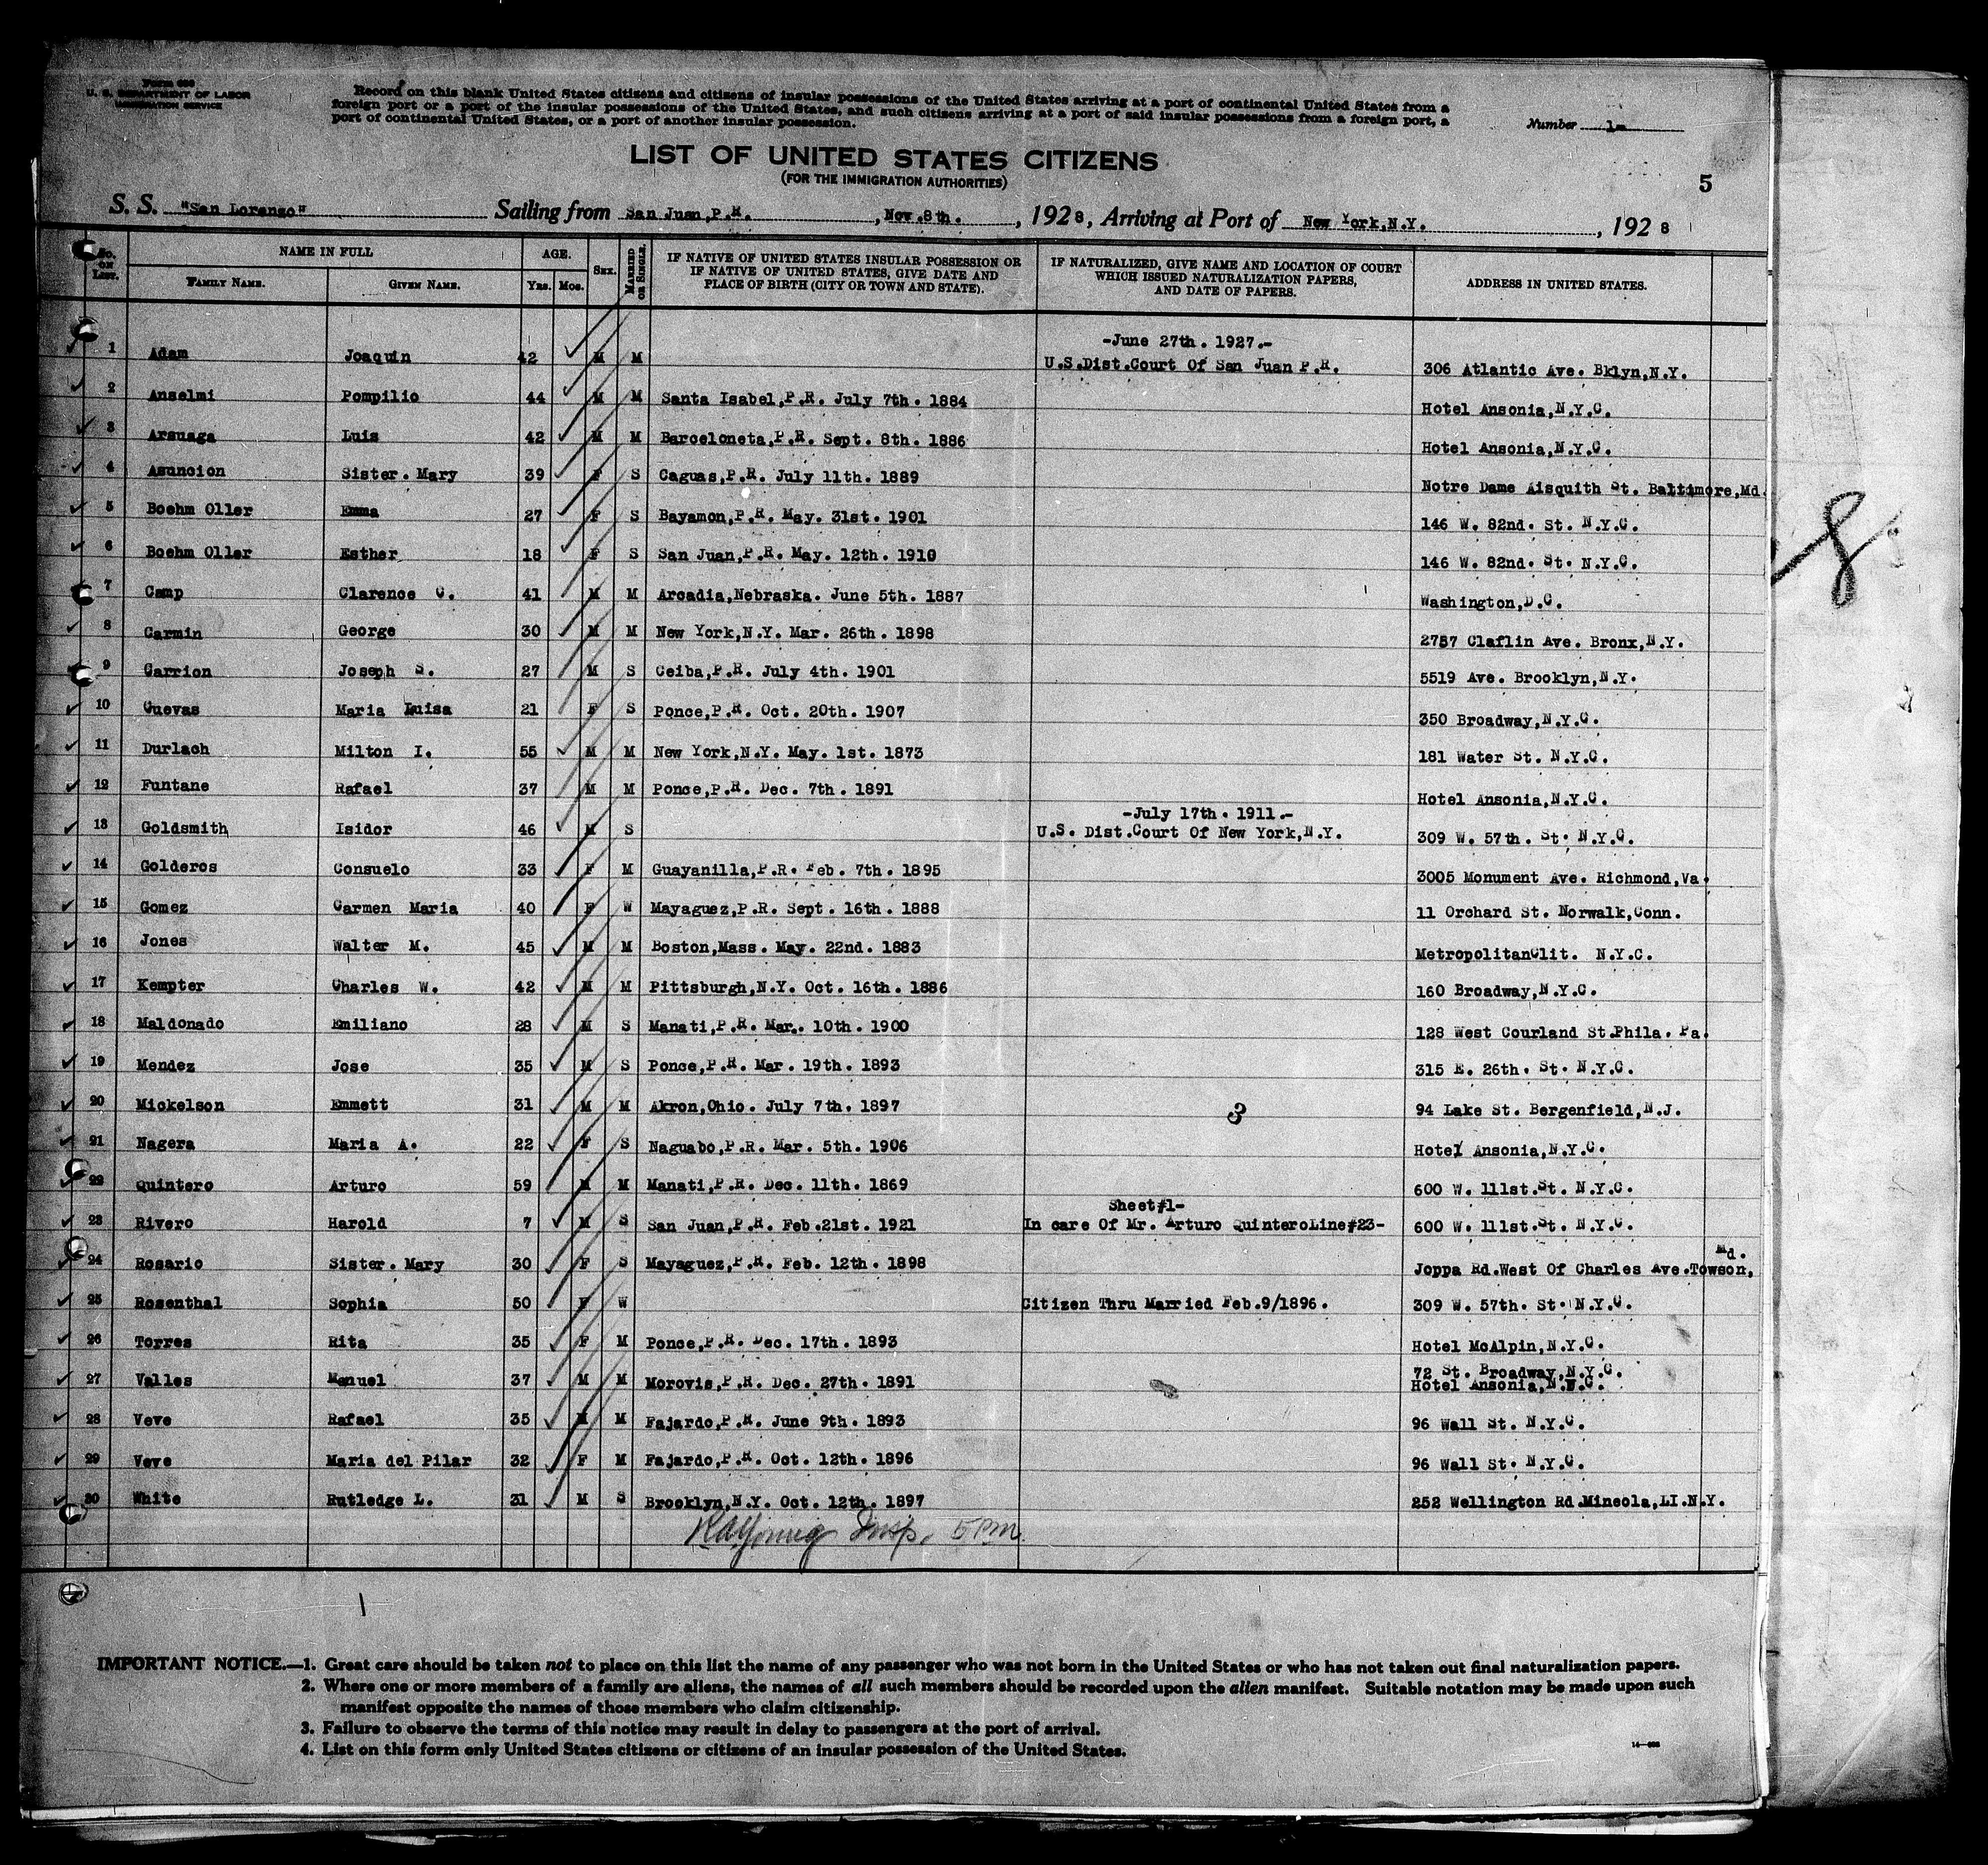 Form 630
U. S. DEPARTMENT OF LABOR
IMMIGRATION SERVICE
Record on this blank United States citizens and citizens of insular possessions of the United States arriving at a port of continental United States from a
foreign port or a port of the insular possessions of the United States, and such citizens arriving at a port of said insular possessions from a foreign port, a
port of continental United States, or a port of another insular possession.
Number 1-
LIST OF UNITED STATES CITIZENS
(FOR THE IMMIGRATION AUTHORITIES)
5
S. S. "San Lorenzo" Sailing from San Juan,P.R. , Nov.8th. , 1928, Arriving at Port of New York,N.Y. , 1928
No. on List. NAME IN FULL FAMILY NAME. GIVEN NAME. AGE. Yrs. Mos. SEX. MARRIED OR SINGLE. IF NATIVE OF UNITED STATES INSULAR POSSESSION OR IF NATIVE OF UNITED STATES, GIVE DATE AND PLACE OF BIRTH (CITY OR TOWN AND STATE). IF NATURALIZED, GIVE NAME AND LOCATION OF COURT WHICH ISSUED NATURALIZATION PAPERS, AND DATE OF PAPERS. ADDRESS IN UNITED STATES.
1 Adam Joaquin 42 M M -June 27th. 1927.- U.S.Dist.Court Of San Juan P.R. 306 Atlantic Ave. Bklyn,N.Y.
2 Anselmi Pompilio 44 M M Santa Isabel,P.R. July 7th. 1884 Hotel Ansonia,N.Y.C.
3 Arsuaga Luis 42 M M Barceloneta,P.R. Sept. 8th. 1886 Hotel Ansonia,N.Y.C.
4 Asuncion Sister. Mary 39 F S Caguas,P.R. July 11th. 1889 Notre Dame Aisquith St. Baltimore,Md.
5 Boehm Oller Emma 27 F S Bayamon,P.R. May. 31st. 1901 146 W. 82nd. St. N.Y.C.
6 Boehm Oller Esther 18 F S San Juan,P.R. May. 12th. 1910 146 W. 82nd. St. N.Y.C.
7 Camp Clarence C. 41 M M Arcadia,Nebraska. June 5th. 1887 Washington,D.C.
8 Carmin George 30 M M New York,N.Y. Mar. 26th. 1898 2787 Claflin Ave. Bronx,N.Y.
9 Carrion Joseph S. 27 M S Ceiba,P.R. July 4th. 1901 5519 Ave. Brooklyn,N.Y.
10 Cuevas Maria Luisa 21 F S Ponce,P.R. Oct. 20th. 1907 350 Broadway,N.Y.C.
11 Durlach Milton I. 55 M M New York,N.Y. May. 1st. 1873 181 Water St. N.Y.C.
12 Funtane Rafael 37 M M Ponce,P.R. Dec. 7th. 1891 Hotel Ansonia,N.Y.C.
13 Goldsmith Isidor 46 M S -July 17th. 1911.- U.S. Dist.Court Of New York,N.Y. 309 W. 57th. St. N.Y.C.
14 Golderos Consuelo 33 F M Guayanilla,P.R. Feb. 7th. 1895 3005 Monument Ave. Richmond,Va.
15 Gomez Carmen Maria 40 F W Mayaguez,P.R. Sept. 16th. 1888 11 Orchard St. Norwalk,Conn.
16 Jones Walter M. 45 M M Boston,Mass. May. 22nd. 1883 MetropolitanClit. N.Y.C.
17 Kempter Charles W. 42 M M Pittsburgh,N.Y. Oct. 16th. 1886 160 Broadway,N.Y.C.
18 Maldonado Emiliano 28 M S Manati,P.R. Mar. 10th. 1900 128 West Courland St.Phila. Pa.
19 Mendez Jose 35 M S Ponce,P.R. Mar. 19th. 1893 315 E. 26th. St. N.Y.C.
20 Mickelson Emmett 31 M M Akron,Ohio. July 7th. 1897 3 94 Lake St. Bergenfield,N.J.
21 Nagera Maria A. 22 F S Naguabo,P.R. Mar. 5th. 1906 Hotel Ansonia,N.Y.C.
22 Quintero Arturo 59 M M Manati,P.R. Dec. 11th. 1869 600 W. 111st.St. N.Y.C.
23 Rivero Harold 7 M S San Juan,P.R. Feb.21st. 1921 Sheet#1- In care Of Mr. Arturo QuinteroLine#23- 600 W. 111st.St. N.Y.C.
24 Rosario Sister. Mary 30 F S Mayaguez,P.R. Feb. 12th. 1898 Joppa Rd.West Of Charles Ave.Towson, Md.
25 Rosenthal Sophia 50 F W Citizen Thru Married Feb.9/1896. 309 W. 57th. St. N.Y.C.
26 Torres Rita 35 F M Ponce,P.R. Dec. 17th. 1893 Hotel McAlpin,N.Y.C.
27 Valles Manuel 37 M M Morovis,P.R. Dec. 27th. 1891 72 St. Broadway,N.Y.C. Hotel Ansonia,N.Y.C.
28 Veve Rafael 35 M M Fajardo,P.R. June 9th. 1893 96 Wall St. N.Y.C.
29 Veve Maria del Pilar 32 F M Fajardo,P.R. Oct. 12th. 1896 96 Wall St. N.Y.C.
30 White Rutledge L. 31 M S Brooklyn,N.Y. Oct. 12th. 1897 252 Wellington Rd.Mineola,LI.N.Y.
RAYoung Insp. 5 PM
8
IMPORTANT NOTICE.—1. Great care should be taken not to place on this list the name of any passenger who was not born in the United States or who has not taken out final naturalization papers.
2. Where one or more members of a family are aliens, the names of all such members should be recorded upon the alien manifest. Suitable notation may be made upon such
manifest opposite the names of those members who claim citizenship.
3. Failure to observe the terms of this notice may result in delay to passengers at the port of arrival.
4. List on this form only United States citizens or citizens of an insular possession of the United States.